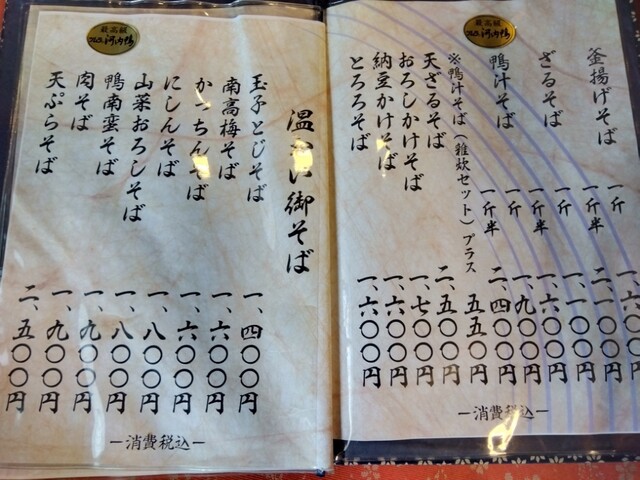 最高級
ツムラの河内鴨
釜揚げそば 一斤 一、六〇〇円
一斤半 二、一〇〇円
ざるそば 一斤 一、一〇〇円
一斤半 一、六〇〇円
鴨汁そば 一斤 一、九〇〇円
一斤半 二、四〇〇円
※鴨汁そば(雑炊セット)プラス 五五〇円
天ざるそば 二、五〇〇円
おろしかけそば 一、七〇〇円
納豆かけそば 一、六〇〇円
とろろそば 一、六〇〇円
―消費税込―
最高級
ツムラの河内鴨
温かい御そば
玉子とじそば 一、四〇〇円
南高梅そば 一、六〇〇円
かっちんそば 一、六〇〇円
にしんそば 一、八〇〇円
山菜おろしそば 一、八〇〇円
鴨南蛮そば 一、九〇〇円
肉そば 一、九〇〇円
天ぷらそば 二、五〇〇円
―消費税込―